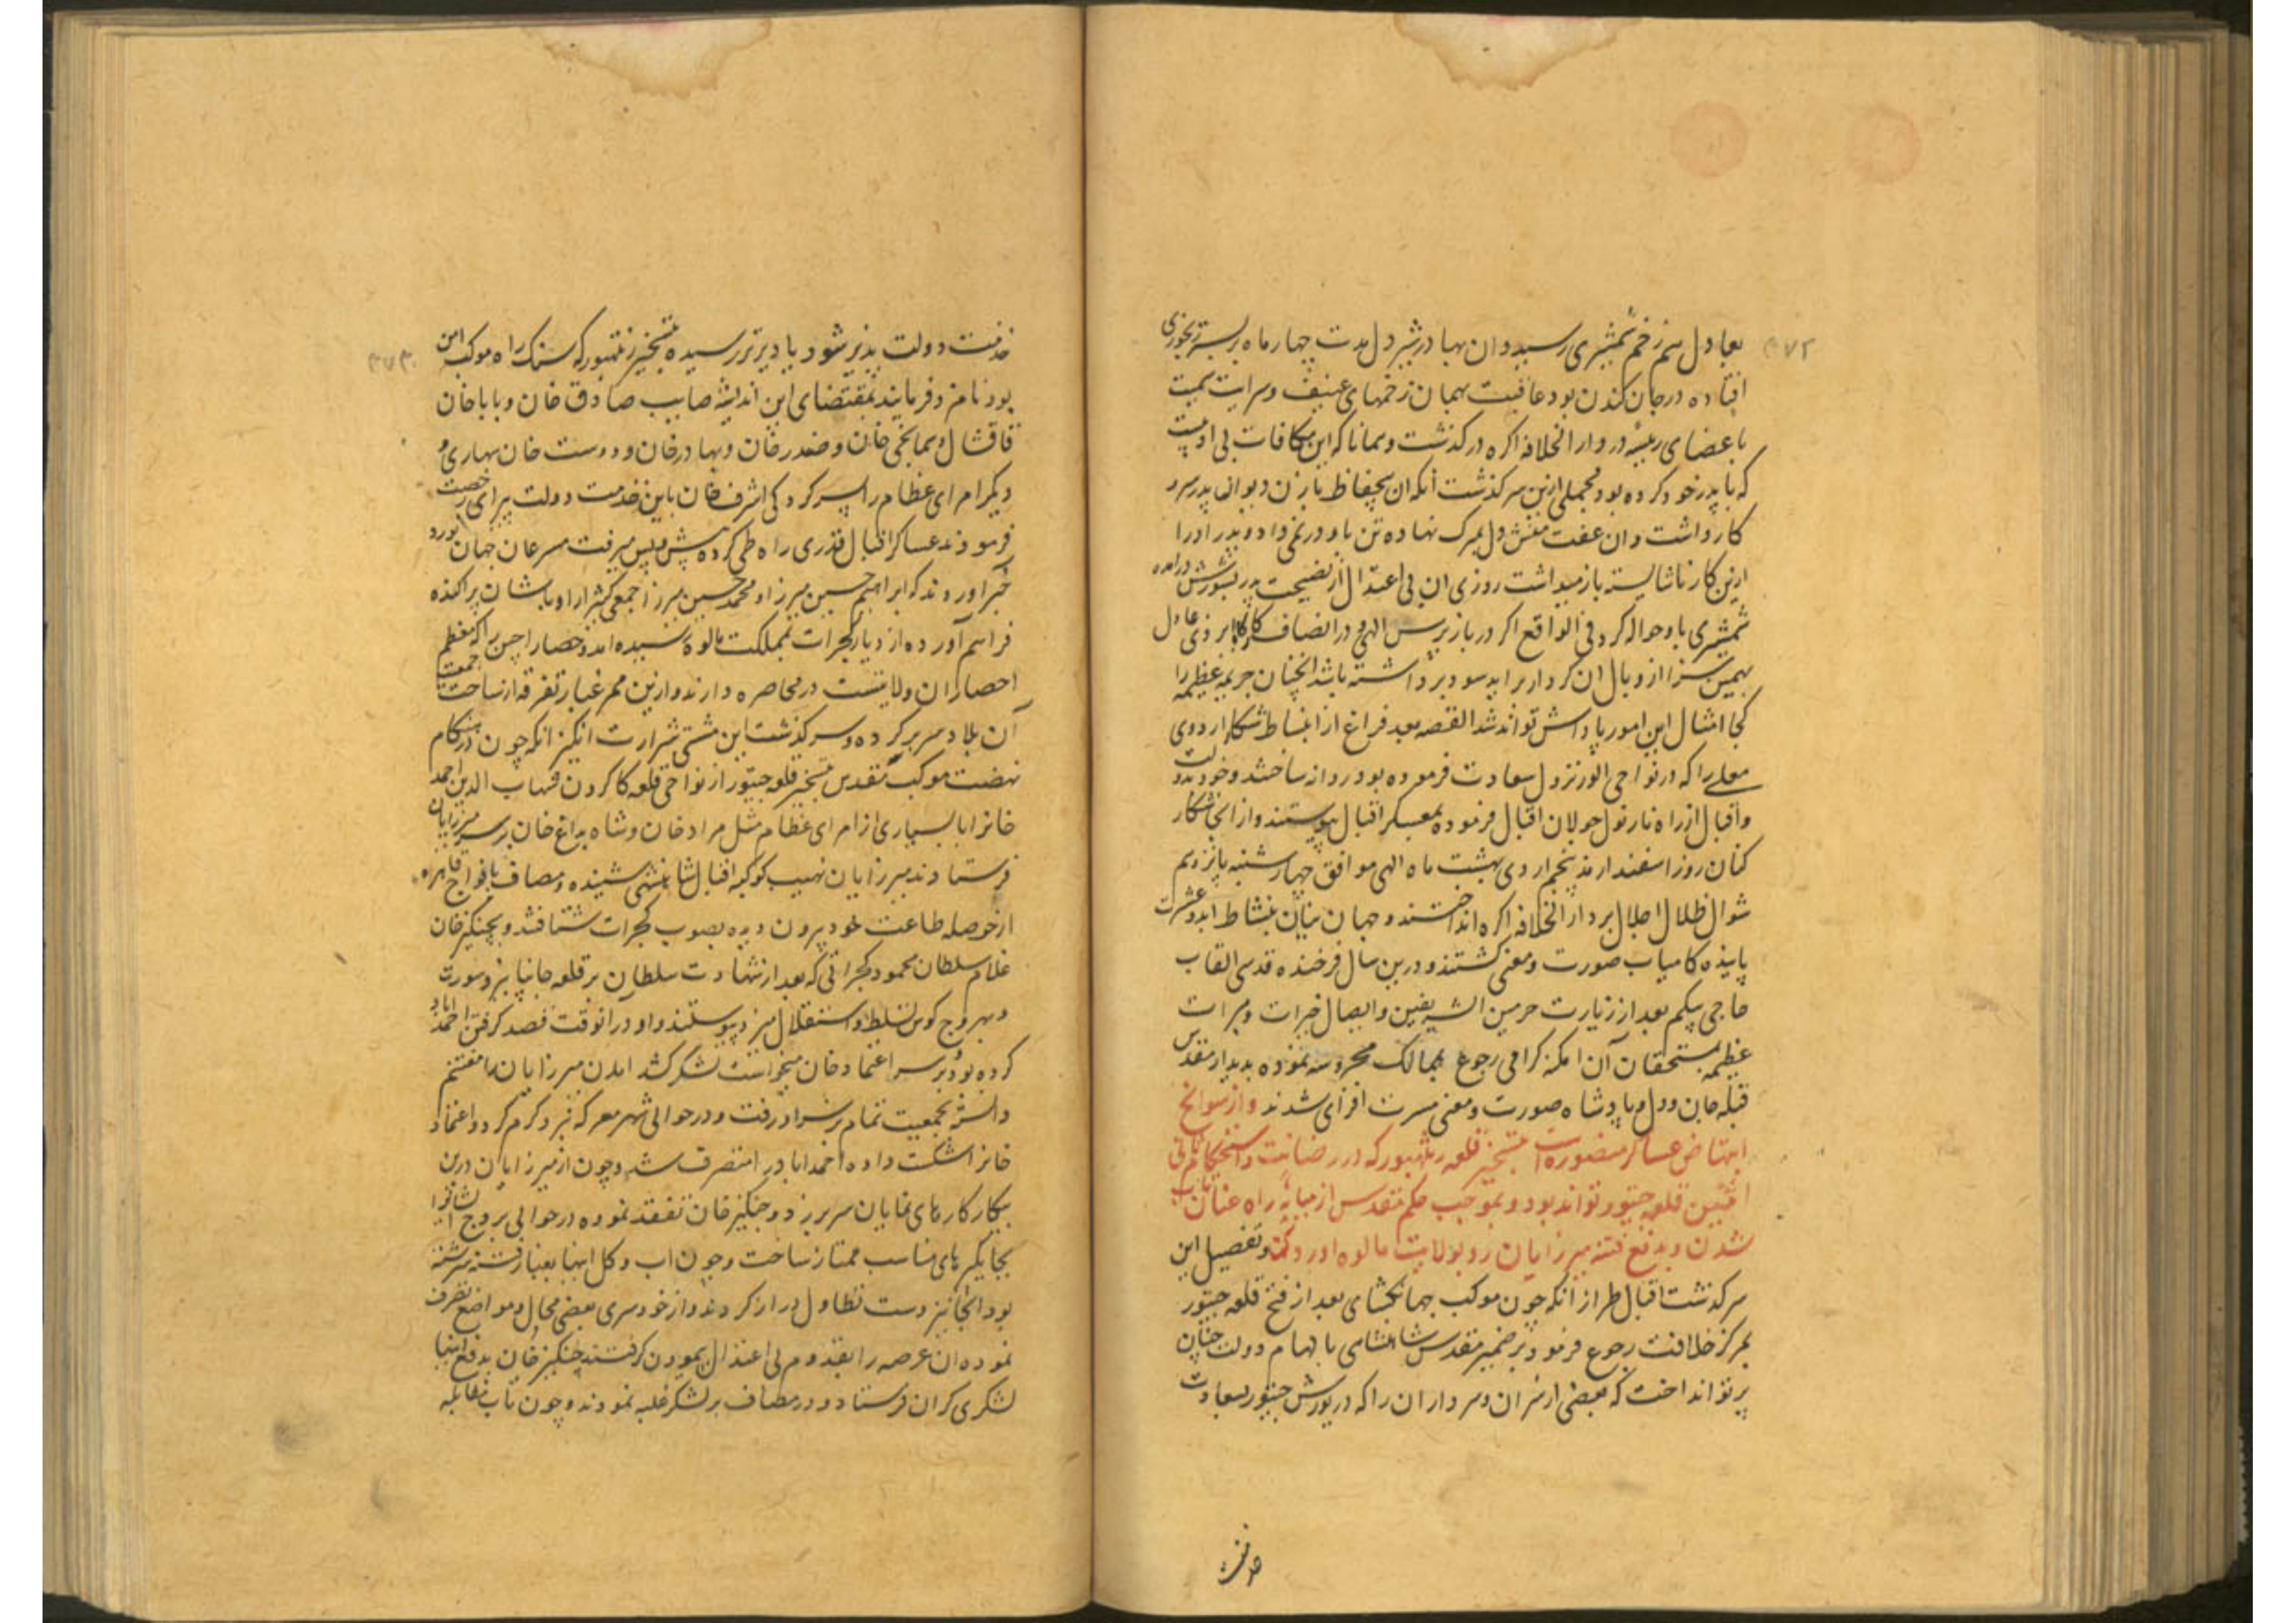 ۳۷۲
بعادل هم زخم شمشیری رسید و ان بهادر شیر دل مدت چهار ماه بر بستر رنجوری
افتاده در جان کندن بود عاقبت بهمان زخمهای عنیف و سرایت سمیت
باعضای رئیسه در دار الخلافه اکره در کذشت و همانا که این مکافات بی ادبیست
که با پدر خود کرده بود و مجملی ازین سر کذشت آنکه ان بیحفاظ با زن دیوانی پدر سر و
کار داشت و ان عفت منش دل بمرک نهاده تن باو در نمی داد و پدر او را
ازین کار ناشایسته باز میداشت روزی ان بی اعتدال از نصیحت پدر بشورش در امده
شمشیری باو حواله کرد فی الواقع اکر در باز پرس الهی و در انصاف کارکاه ایزدی عادل
بهمین سزا از وبال ان کردار بر اید سود برداشته باشد انچنان جریمه عظیمه را
کجا امثال این امور پاداش تواند شد القصه بعد فراغ از انبساط شکار اردوی
معلی را که در نواحی الور نزول سعادت فرموده بود روانه ساختند و خود بدولت
واقبال از راه نارنول جولان اقبال فرموده بمعسکر اقبال پیوستند و از انجا شکار
کنان روز اسفندارمذ پنجم اردی بهشت ماه الهی موافق چهارشنبه پانزدهم
شوال ظلال اجلال بر دار الخلافه اکره انداختند و جهان بنیان بنشاط ابد و عشرت
پاینده کامیاب صورت و معنی کشتند و درین سال فرخنده قدسی القاب
حاجی بیکم بعد از زیارت حرمین الشریفین و ایصال خیرات و مبرات
عظیمه بمستحقان آن امکنه کرامی رجوع بممالک محروسه نموده بدیدار مقدس
قبله جان و دل و پادشاه صورت و معنی مسرت افزای شدند و از سوانح
انتهاض عساکر منصوره است بتسخیر قلعه رنتهبور که در رصانت و استحکام ثانی
اثنین قلعه جیتور تواند بود و بموجب حکم مقدس از میانه راه عنان تاب
شدن و بدفع فتنه میرزایان رو بولایت مالوه اوردن و تفصیل این
سر کذشت اقبال طراز آنکه چون موکب جهانکشای بعد از فتح قلعه جیتور
بمرکز خلافت رجوع فرمود بر ضمیر مقدس شاهنشاهی بالهام دولت چنان
پرتو انداخت که بعضی از سران و سرداران را که در یورش جیتور بسعادت
خدمت
۳۷۳
خدمت دولت پذیر شود یا دیرتر رسیده بتسخیر رنتهبور که سنک راه موکب امن
بود نامزد فرمایند بمقتضای این اندیشه صایب صادق خان و بابا خان
قاقشال و سمانجی خان و صفدر خان و بهادر خان و دوست خان سهاری و
دیکر امرای عظام را بسرکردکی اشرف خان باین خدمت دولت پیرای رخصت
فرمودند عساکر اقبال قدری راه طی کرده پیش پیش میرفت مسرعان جهان نورد
خبر اوردند که ابراهیم حسین میرزا و محمد حسین میرزا جمعی کثیر از اوباشان پراکنده
فراهم آورده از دیار کجرات بمملکت مالوه رسیده اند و حصار اجین را که معظم
احصاران ولایتست در محاصره دارند و ازین ممر غبار تفرقه از ساحت جمعیت
آن بلاد سر بر کرده و سر کذشت این مشتی شرارت انکیز انکه چون در هنکام
نهضت موکب مقدس بتسخیر قلعه جیتور از نواحی قلعه کاکرون شهاب الدین احمد
خانرا با بسیاری از امرای عظام مثل مراد خان و شاه بداغ خان بر سر میرزایان
فرستادند میرزایان نهیب کوکبه اقبال شاهنشهی شنیده و مصاف بافواج قاهره
از حوصله طاعت خود بیرون دیده بصوب کجرات شتافتند و بچنکیز خان
غلام سلطان محمود کجراتی که بعد از شهادت سلطان بر قلعه جانپانیر و سورت
و بهروج کوس تسلط و استقلال میزد پیوستند و او در آنوقت قصد کرفتن احمد اباد
کرده بود و بر سر اعتماد خان میخواست لشکر کشد امدن میرزایان را مغتنم
دانسته بجمعیت تمام بر سر او رفت و در حوالی شهر معرکه نبرد کرم کرد و اعتماد
خانرا شکست داده احمداباد را متصرف شد و چون از میرزایان درین
پیکار کارهای نمایان سر بر زد و چنکیز خان تفقد نموده در حوالی بروج ایشانرا
بجایکیر های مناسب ممتاز ساخت و چون اب و کل اینها بغبار فتنه سرشته
بود انجا نیز دست تطاول دراز کردند و از خود سری بعضی محال و مواضع تصرف
نموده ان عرصه را بقدم بی اعتدالی پیمودن کرفتند چنکیز خان بدفع اینها
لشکری کران فرستاد و در مصاف بر لشکر غلبه نمودند و چون تاب مقابله